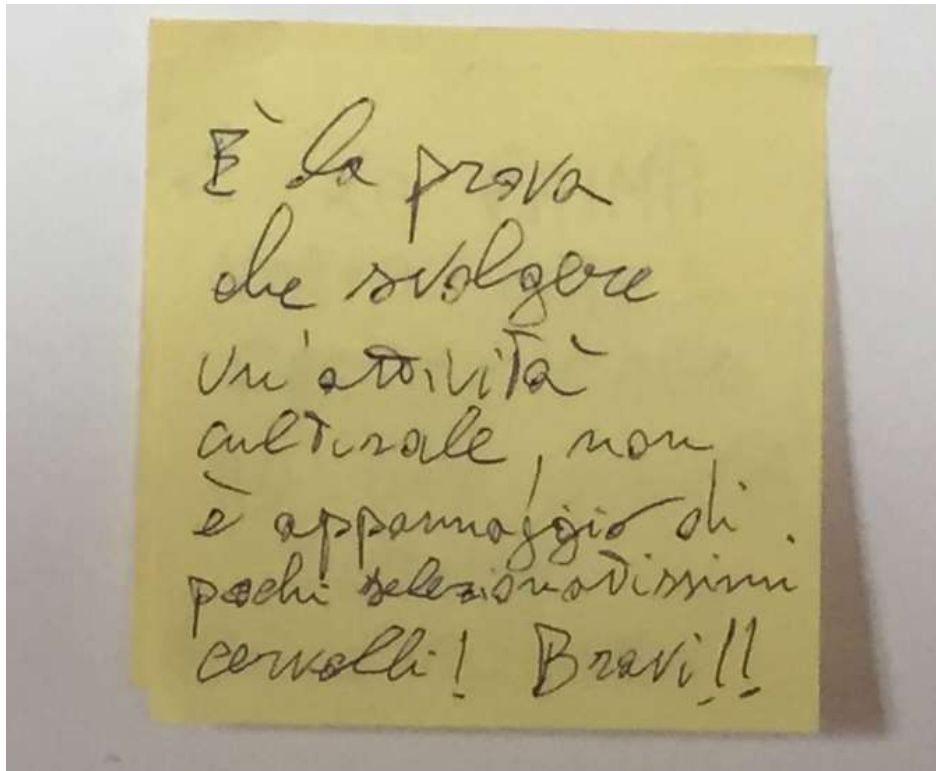 È la prova
che svolgere
un'attività
culturale, non
è appannaggio di
pochi selezionatissimi
cervelli! Bravi!!